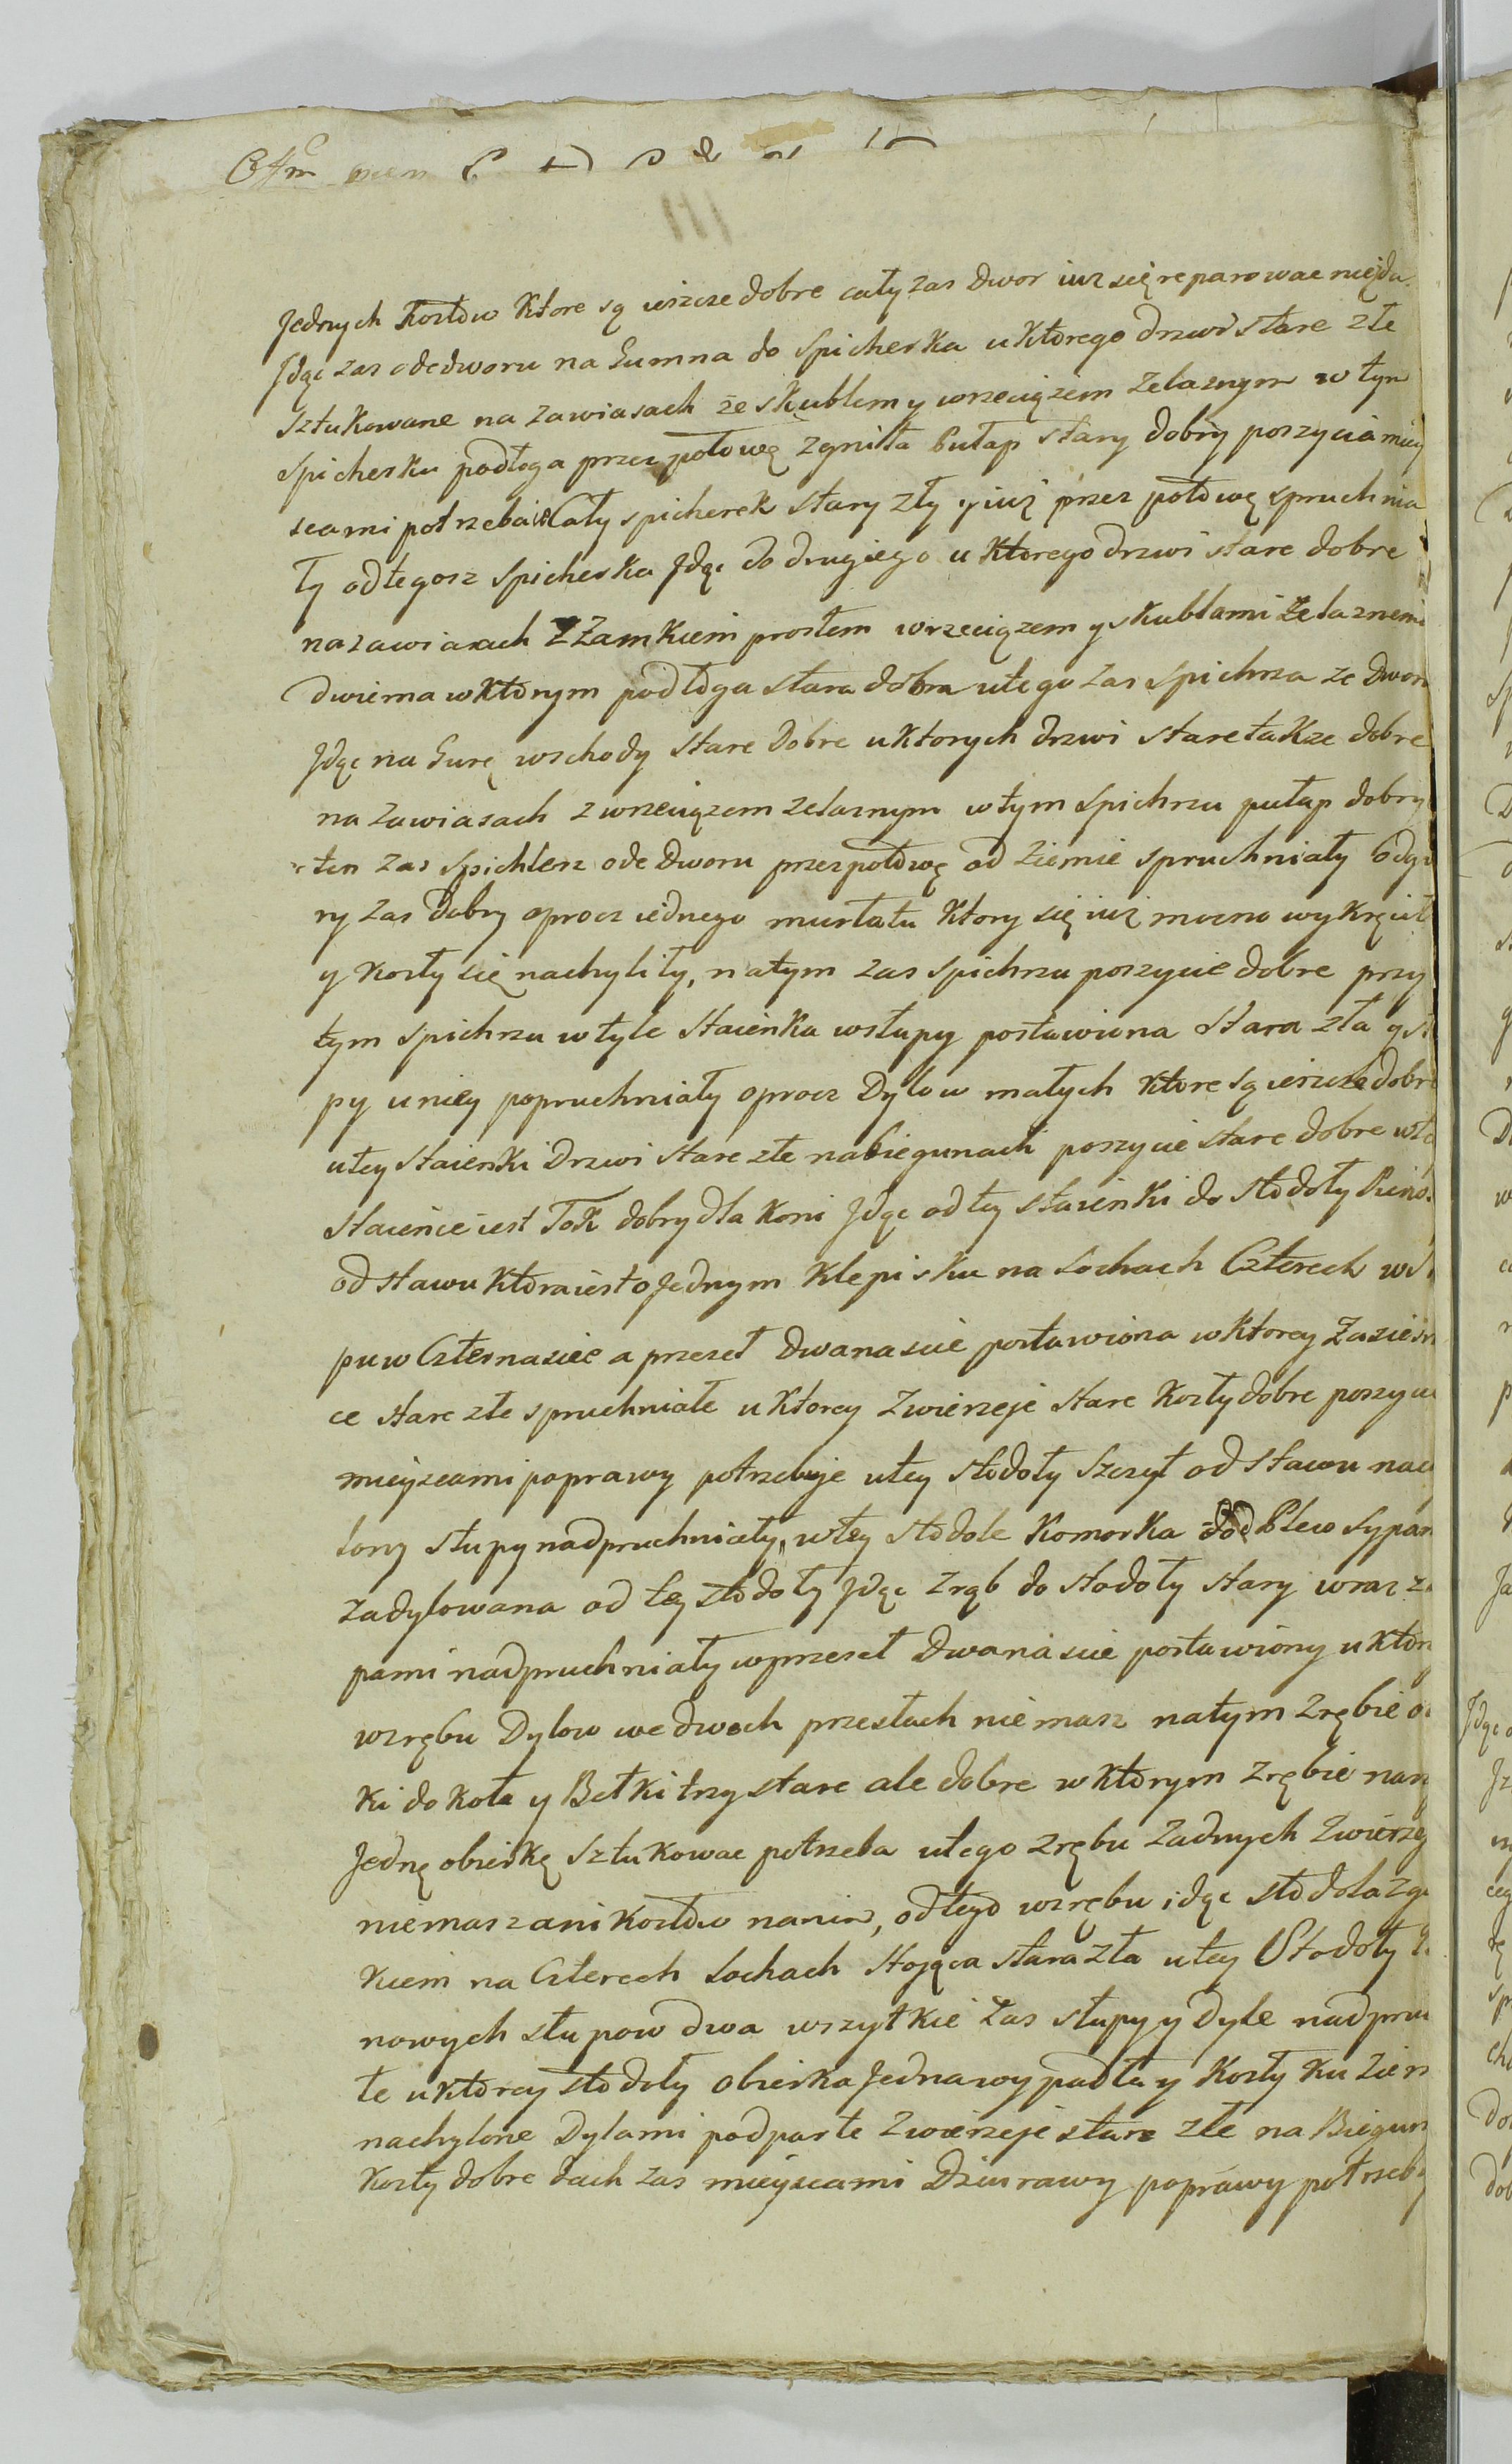 Jednych Kozłow Ktore są ieszcze dobre cały zas Dwor iuz się reparowac nieda
Jdąc zas ode dworu na Gumna do Spicherka u Ktorego drzwi stare złe
Sztukowane na zawiasach ze skublem y wrzeciązem zelaznym w tym
Spicherku podłoga przez połowę zgniła Pułap stary dobry poszycia miey
scami potrzeba Cały spicherek stary zły y iuz przez połowę spruchnia
ły od tegosz Spicherka Jdąc do drugiego u Ktorego drzwi stare dobre
na zawiasach Z Zamkiem prostem wrzeciązem y skublami Zelaznemi
dwiema w Ktorym podłoga stara dobra u tego zas Spichrza ze Dworu
Jdąc na Gurę wschody stare dobre u Ktorych drzwi stare takze dobre
na zawiasach z wrzeciązem zelaznym w tym Spichrzu pułap dobry
ten zas Spichlerz ode Dworu przez połowę od ziemie spruchniały od gu
ry zas dobry oprocz iednego murłatu Ktory się iuz mocno wykręcił
y Kozły się nachyliły, na tym zas spichrzu poszycie dobre przy
tym Spichrzu w tyle Staienka w słupy postawiona stara zła y słu
py u niey popruchniały oprocz Dylow małych Ktore są ieszcze dobre
u tey staienki Drzwi stare złe na biegunach poszycie stare dobre w te
staience iest Tok dobry dla Koni Jdąc od tey staienki do stodoły
od stawu Ktora iest o Jednym Klepisku na Sochach Czterech w słu
puw Czternascie a przeseł Dwanascie postawiona w Ktorey Zasiem
ce stare złe spruchniałe u Ktorey Zwierzeje stare Kozły dobre poszycie
mieyscami poprawy potrzebuje u tey stodoły Szczyt od Stawu nachy
lony słupy nadpruchniały, w tey stodole Komorka od Plew Sypan
zadylowana od tey stodoły Jdąc zrąb do stodoły stary wraz ze
pami nadpruchniały w przeseł Dwanascie postawiony u Ktor
w zrębu Dylow we dwoch przesłach nie masz na tym Zrębie o
ki do Koła y Belki trzy stare ale dobre w Ktorym Zrębie nan
Jednę obierkę Sztukowac potrzeba u tego Zrębu Zadnych Zwierzey
niemasz ani Kozłow nanim, od tego w zrębu idąc stodoła z ga
kiem na Czterech Sochach stojąca stara zła u tey Stodoły
nowych słupow dwa wszytkie zas słupy y Dyle nadpruch
łe u Ktorey stodoły obierka Jedna wypadła y Kozły Ku Ziem
nachylone Dylami podparte Zwierzeje stare złe na Biegun
Kozły dobre dach zas mieyscami Dziurawy poprawy potrzebu